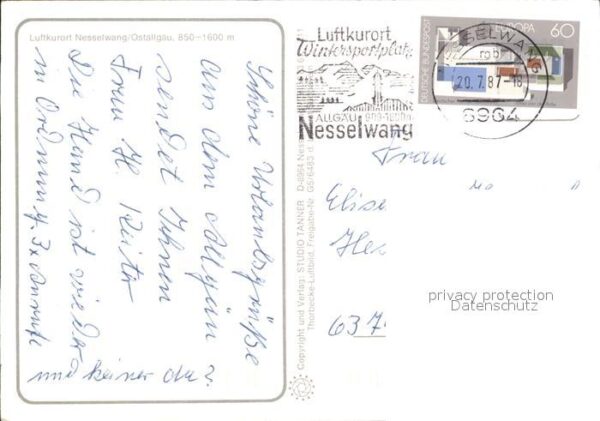 Luftkurort Nesselwang/Ostallgäu, 850–1600 m
Schöne Urlaubsgrüße
aus dem Allgäu
sendet Ihnen
Frau H.
Die Hand ist wieder
in Ordnung. 3x
und keiner da?
Copyright und Verlag: STUDIO TANNER D-8964 Nesselwang
Thorbecke-Luftbild, Freigabe-Nr.
Luftkurort
Wintersportplatz
ALLGÄU 900-1600m
Nesselwang
DEUTSCHE BUNDESPOST
EUROPA 60
NESSELWANG
20.7.87-18
8964
Frau
Elise
Hes
637
privacy protection
Datenschutz